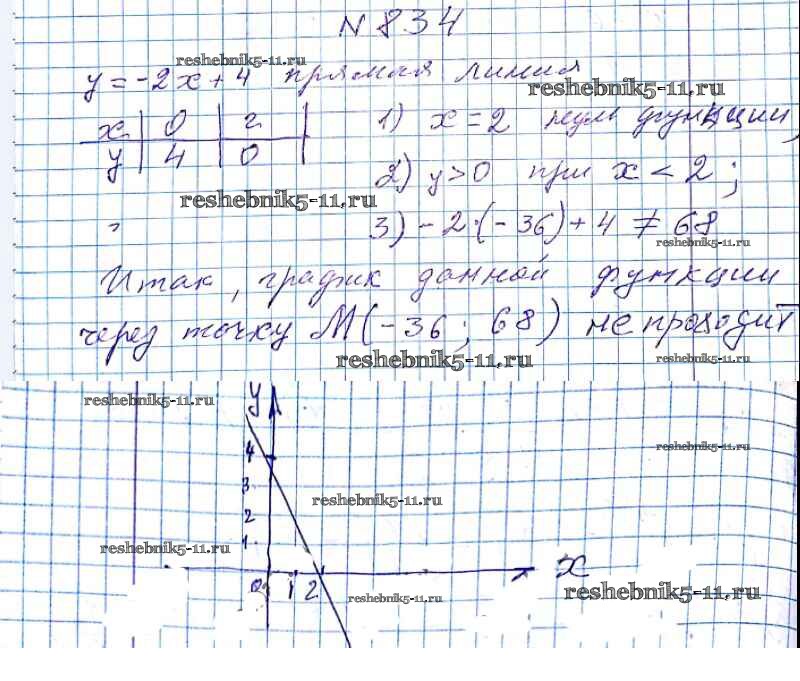 № 834
reshebnik5-11.ru
y = -2x + 4 прямая линия
reshebnik5-11.ru
x | 0 | 2 |
y | 4 | 0
1) x = 2 нуль функции,
2) y > 0 при x < 2 ;
reshebnik5-11.ru
3) - 2 · (- 36) + 4 ≠ 68
reshebnik5-11.ru
Итак, график данной функции
через точку М(-36 ; 68) не проходит
reshebnik5-11.ru
reshebnik5-11.ru
reshebnik5-11.ru
y
4
reshebnik5-11.ru
3
reshebnik5-11.ru
2
1
reshebnik5-11.ru
x
0 1 2
reshebnik5-11.ru
reshebnik5-11.ru